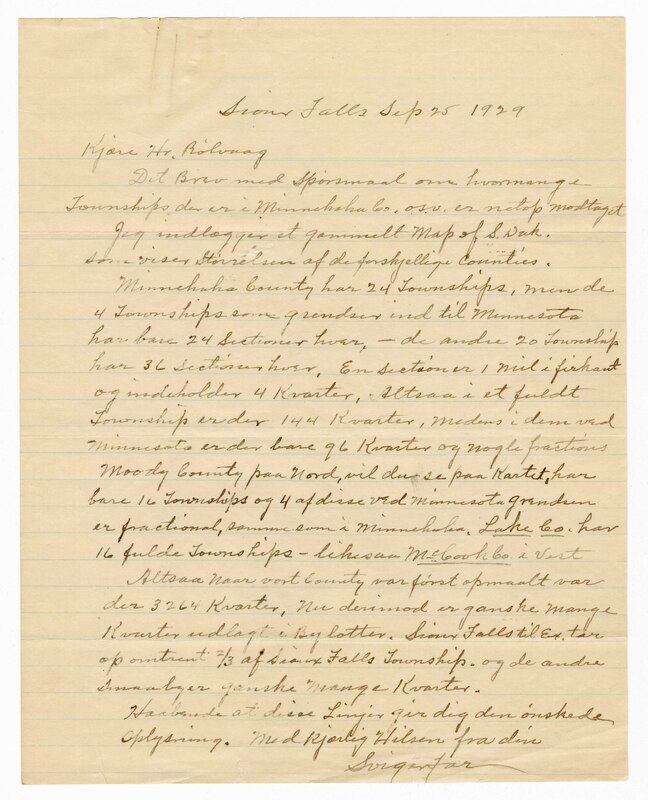 Sioux Falls Sep 25 1929
Kjære Hr. Rölvaag
Det Brev med Spörsmaal om hvormange
Townships der er i Minnehaha Co. o.s.v. er netop modtaget
Jeg indlægger et gammelt Map of S. Dak.
som viser Störrelsen af de forskjellige Counties.
Minnehaha County har 24 Townships, men de
4 Townships som grendser ind til Minnesota
har bare 24 Sectioner hver, – de andre 20 Township
har 36 Sectioner hver. En Section er 1 Mil i firkant
og indeholder 4 Kvarter. Altsaa i et fuldt
Township er der 144 Kvarter, medens i dem ved
Minnesota er der bare 96 Kvarter og nogle fractions
Moody County paa Nord, vil du se paa Kartet, har
bare 16 Townships og 4 af disse ved Minnesota grendsen
er fractional, samme som i Minnehaha. Lake Co. har
16 fulde Townships – likesaa McCook Co i Vest
Altsaa Naar vort County var först opmaalt var
der 3264 Kvarter, Nu derimod er ganske mange
Kvarter udlagt i Bylotter. Sioux Falls til Ex. tar
op omtrent 2/3 af Sioux Falls Township. og de andre
Smaabyer ganske Mange Kvarter.
Haabende at disse Linjer gir dig den önskede
Oplysning. Med Kjærlig Hilsen fra din
Svigerfar